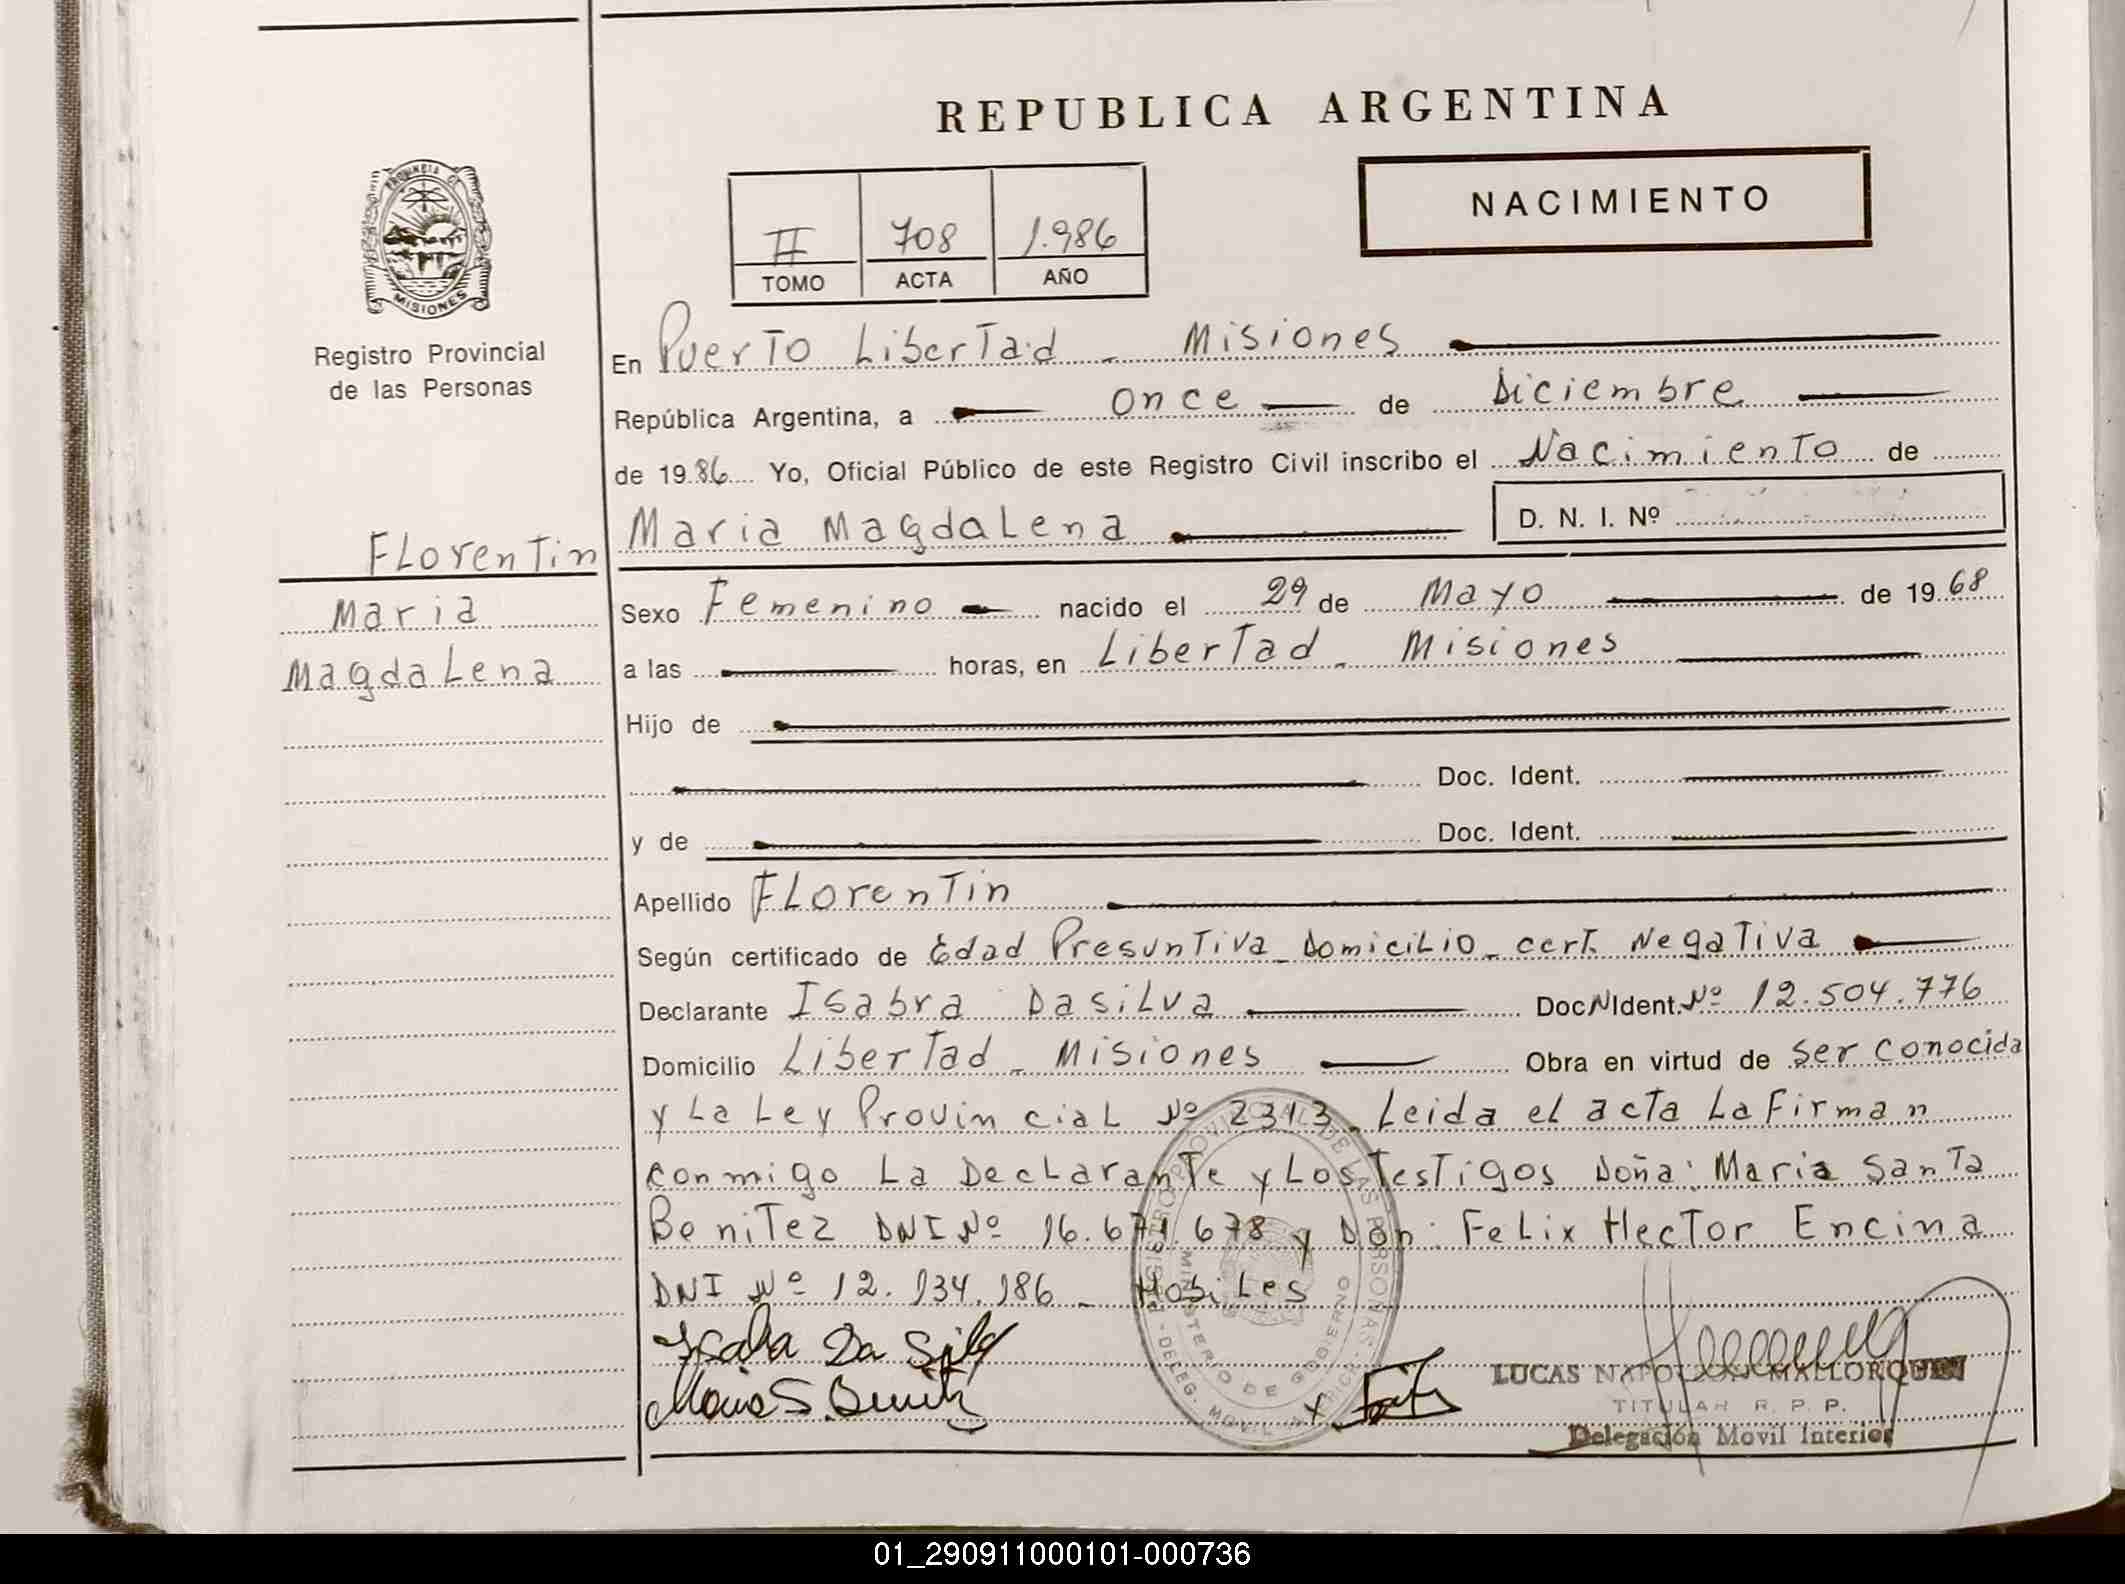 REPUBLICA ARGENTINA
NACIMIENTO
II 708 1.986
TOMO ACTA AÑO
PROVINCIA DE
MISIONES
Registro Provincial
de las Personas
Florentin
Maria
Magdalena
En Puerto Libertad - Misiones
República Argentina, a once de Diciembre
de 1986 Yo, Oficial Público de este Registro Civil inscribo el Nacimiento de
Maria Magdalena D. N. I. Nº
Sexo Femenino nacido el 29 de Mayo de 1968
a las horas, en Libertad - Misiones
Hijo de
Doc. Ident.
y de Doc. Ident.
Apellido Florentin
Según certificado de Edad Presuntiva - Domicilio - cert. Negativa
Declarante Isabra Dasilva Doc Ident. Nº 12.504.776
Domicilio Libertad - Misiones Obra en virtud de ser conocida
y La Ley Provincial Nº 2313. Leida el acta La Firman
conmigo La Declarante y Los Testigos Doña: Maria Santa
Benitez DNI Nº 16.671.678 y Don: Felix Hector Encina
DNI Nº 12.134.186 - Habiles
Maria S. Benitz
LUCAS NAPOLEON MALLORQUIN
TITULAR R. P. P.
Delegación Movil Interior
REGISTRO PROVINCIAL DE LAS PERSONAS
MINISTERIO DE GOBIERNO
01_290911000101-000736